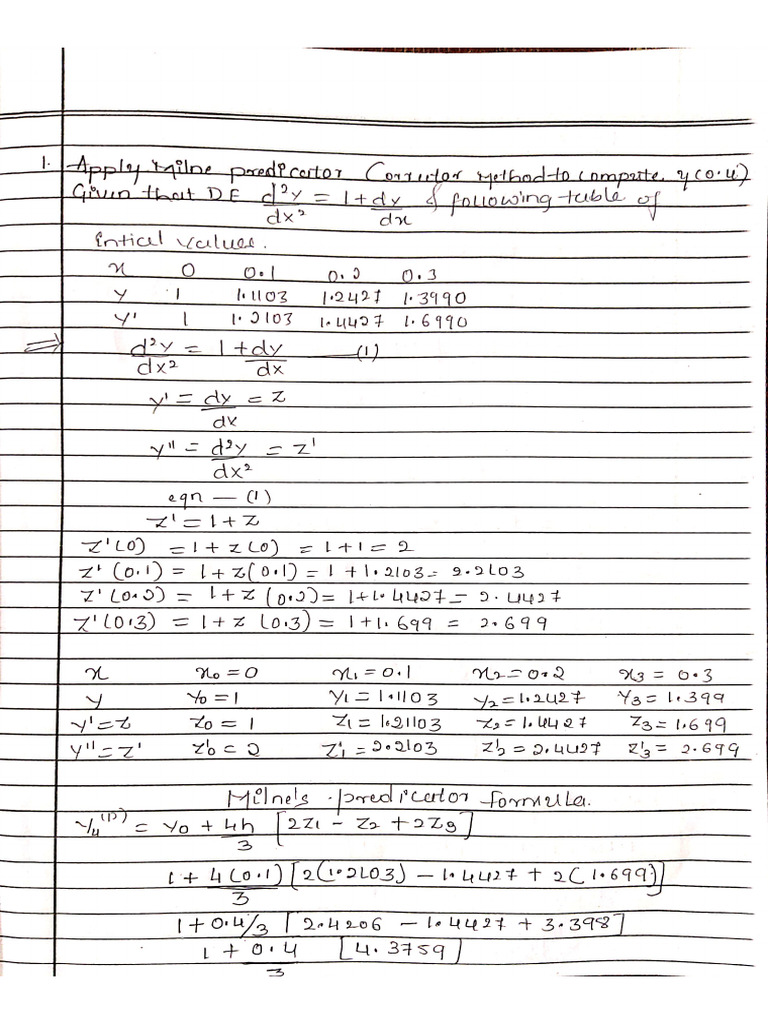 1. Apply Milne predicator Corrector Method to compute y(0.4)
Given that DE d²y/dx² = 1 + dy/dx & following table of
Entical values.
x 0 0.1 0.2 0.3
y 1 1.1103 1.2427 1.3990
y' 1 1.2103 1.4427 1.6990
⇒ d²y/dx² = 1 + dy/dx — (1)
y' = dy/dx = z
y'' = d²y/dx² = z'
eqn — (1)
z' = 1 + z
z'(0) = 1 + z(0) = 1 + 1 = 2
z'(0.1) = 1 + z(0.1) = 1 + 1.2103 = 2.2103
z'(0.2) = 1 + z(0.2) = 1 + 1.4427 = 2.4427
z'(0.3) = 1 + z(0.3) = 1 + 1.699 = 2.699
x x₀ = 0 x₁ = 0.1 x₂ = 0.2 x₃ = 0.3
y y₀ = 1 y₁ = 1.1103 y₂ = 1.2427 y₃ = 1.399
y' = z z₀ = 1 z₁ = 1.21103 z₂ = 1.4427 z₃ = 1.699
y'' = z' z'₀ = 2 z'₁ = 2.2103 z'₂ = 2.4427 z'₃ = 2.699
Milne's predicator formula.
y₄⁽ᵖ⁾ = y₀ + 4h/3 [2z₁ - z₂ + 2z₃]
1 + 4(0.1)/3 [2(1.2103) - 1.4427 + 2(1.699)]
1 + 0.4/3 [2.4206 - 1.4427 + 3.398]
1 + 0.4/3 [4.3759]